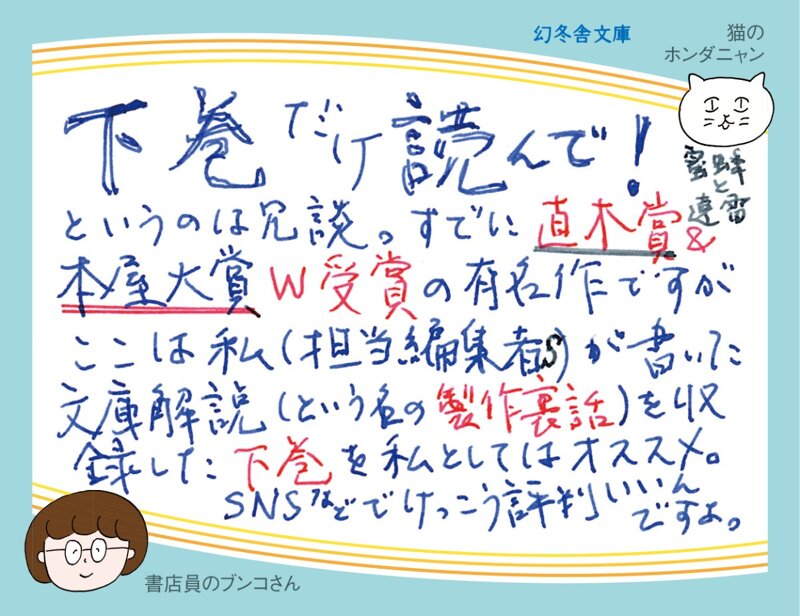 幻冬舎文庫
猫の
ホンダニャン
下巻だけ読んで!
蜜蜂と
遠雷
というのは冗談。すでに直木賞&
本屋大賞W受賞の有名作ですが
ここは私(担当編集者S)が書いた
文庫解説(という名の製作裏話)を収
録した下巻を私としてはオススメ。
SNSなどでけっこう評判いいん
ですよ。
書店員のブンコさん